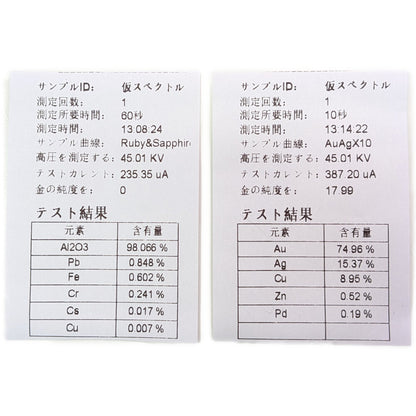 サンプルID: 仮スペクトル
測定回数: 1
測定所要時間: 60秒
測定時間: 13:08:24
サンプル曲線: Ruby&Sapphire
高圧を測定する: 45.01 KV
テストカレント: 235.35 uA
金の純度を: 0
テスト結果
元素 含有量
Al2O3 98.066 %
Pb 0.848 %
Fe 0.602 %
Cr 0.241 %
Cs 0.017 %
Cu 0.007 %
サンプルID: 仮スペクトル
測定回数: 1
測定所要時間: 10秒
測定時間: 13:14:22
サンプル曲線: AuAgX10
高圧を測定する: 45.01 KV
テストカレント: 387.20 uA
金の純度を: 17.99
テスト結果
元素 含有量
Au 74.96 %
Ag 15.37 %
Cu 8.95 %
Zn 0.52 %
Pd 0.19 %